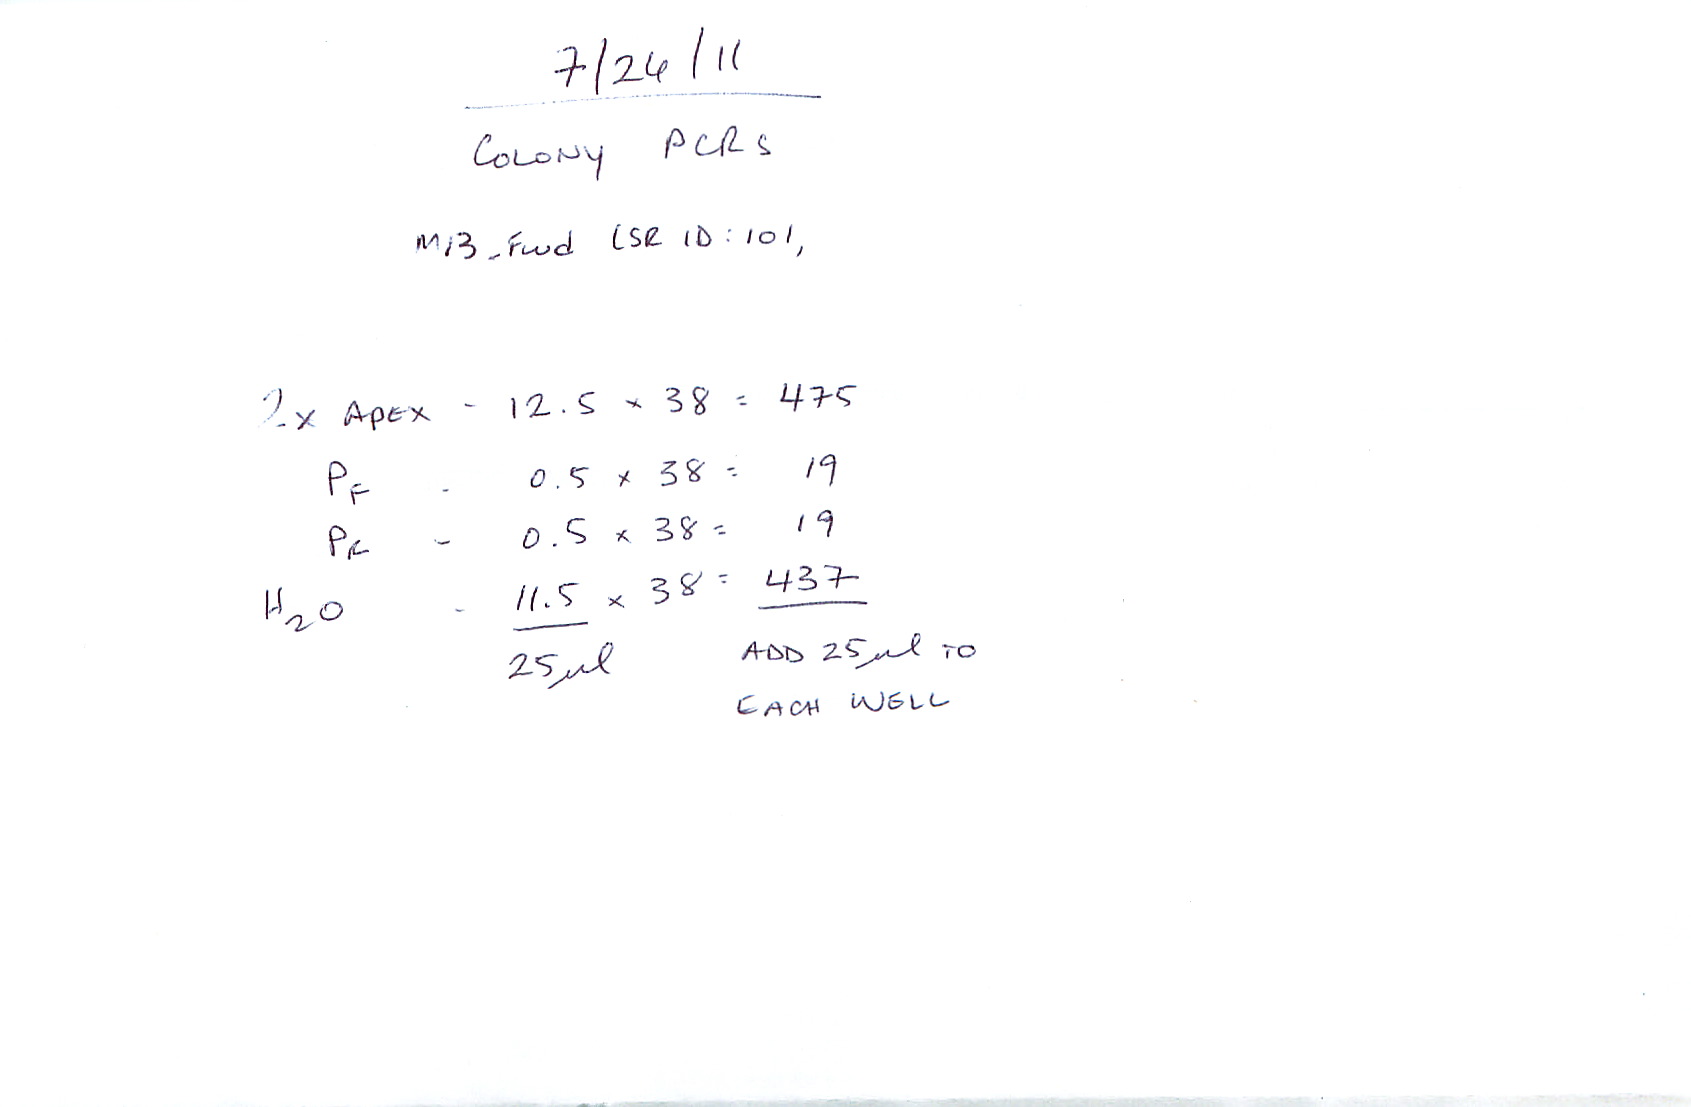 7/26/11
COLONY PCRs
M13_Fwd LSR ID: 101,
2x APEX - 12.5 x 38 = 475
PF - 0.5 x 38 = 19
PR - 0.5 x 38 = 19
H2O - 11.5 x 38 = 437
25µl ADD 25µl TO
EACH WELL